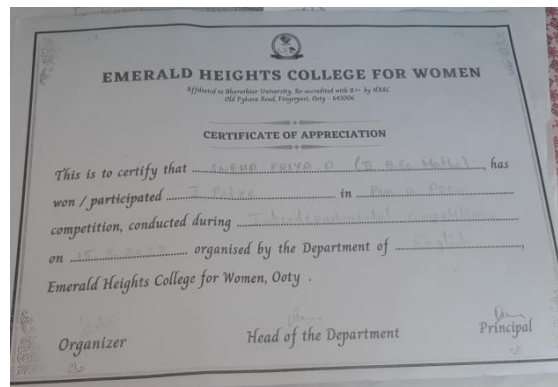 EMERALD HEIGHTS COLLEGE FOR WOMEN
Affiliated to Bharathiar University, Re-accredited with B++ by NAAC
Old Pykara Road, Fingerpost, Ooty - 643006
CERTIFICATE OF APPRECIATION
This is to certify that SNEHA PRIYA (II B.Sc Maths), has
won / participated I Prize in Pen a Poem
competition, conducted during Interdepartmental competition
on organised by the Department of English,
Emerald Heights College for Women, Ooty .
Organizer Head of the Department Principal